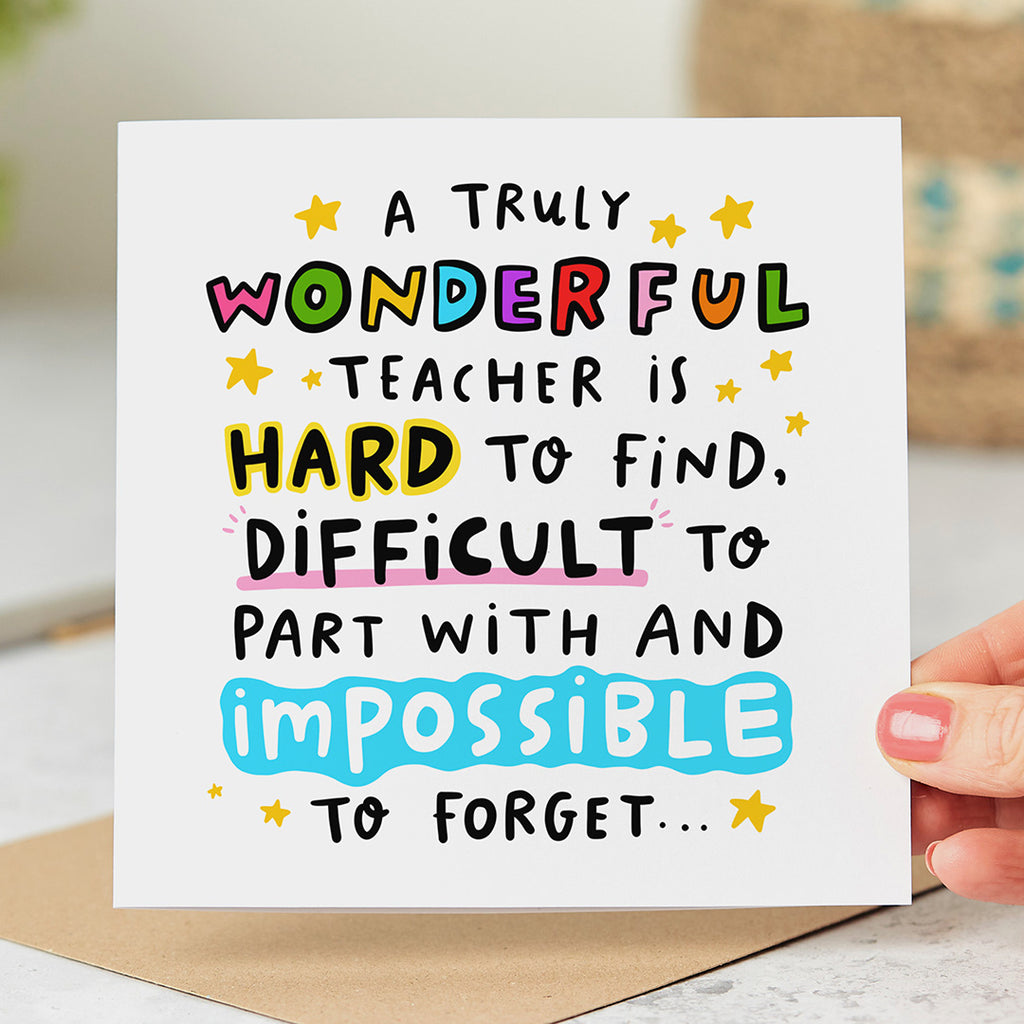 A TRULY
WONDERFUL
TEACHER iS
HARD TO FiND,
DiFFiCULT TO
PART WiTH AND
imPOSSiBLE
TO FORGET...